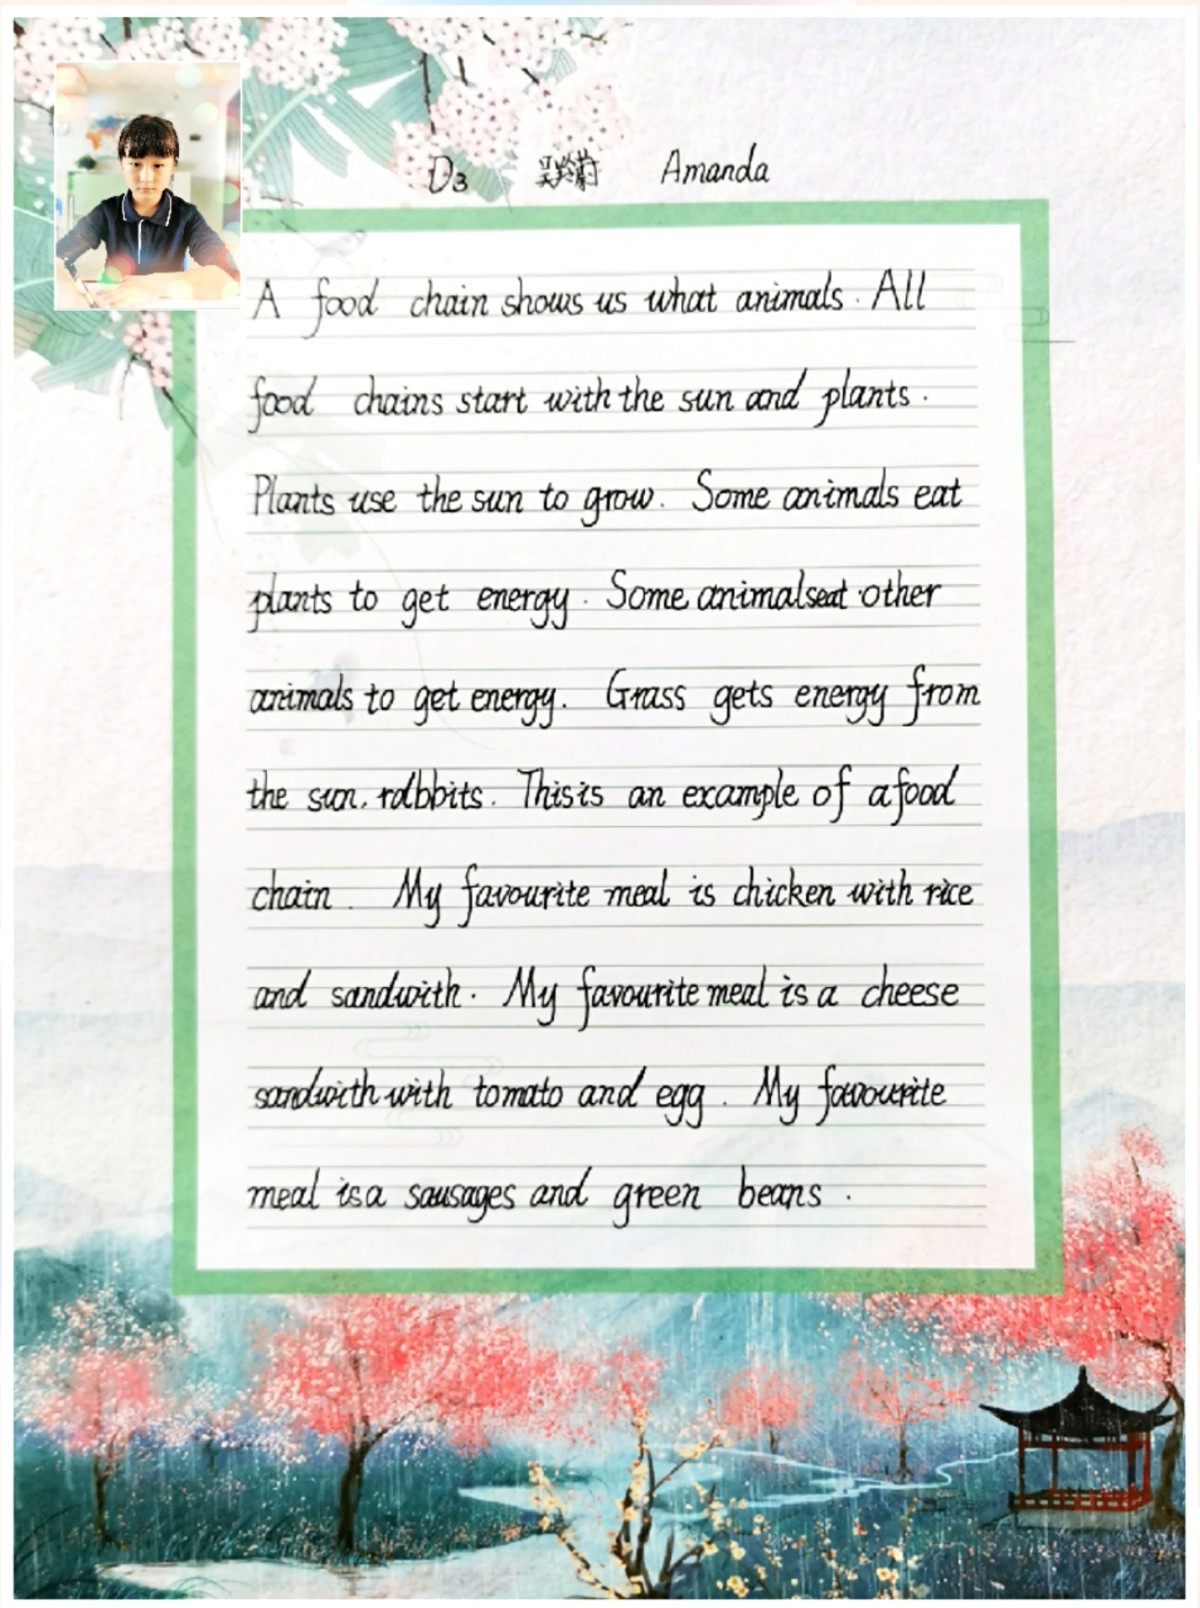 D3 吴羚蔚 Amanda
A food chain shows us what animals. All
food chains start with the sun and plants.
Plants use the sun to grow. Some animals eat
plants to get energy. Some animals eat other
animals to get energy. Grass gets energy from
the sun. rabbits. This is an example of a food
chain. My favourite meal is chicken with rice
and sandwith. My favourite meal is a cheese
sandwith with tomato and egg. My favourite
meal is a sausages and green beans.